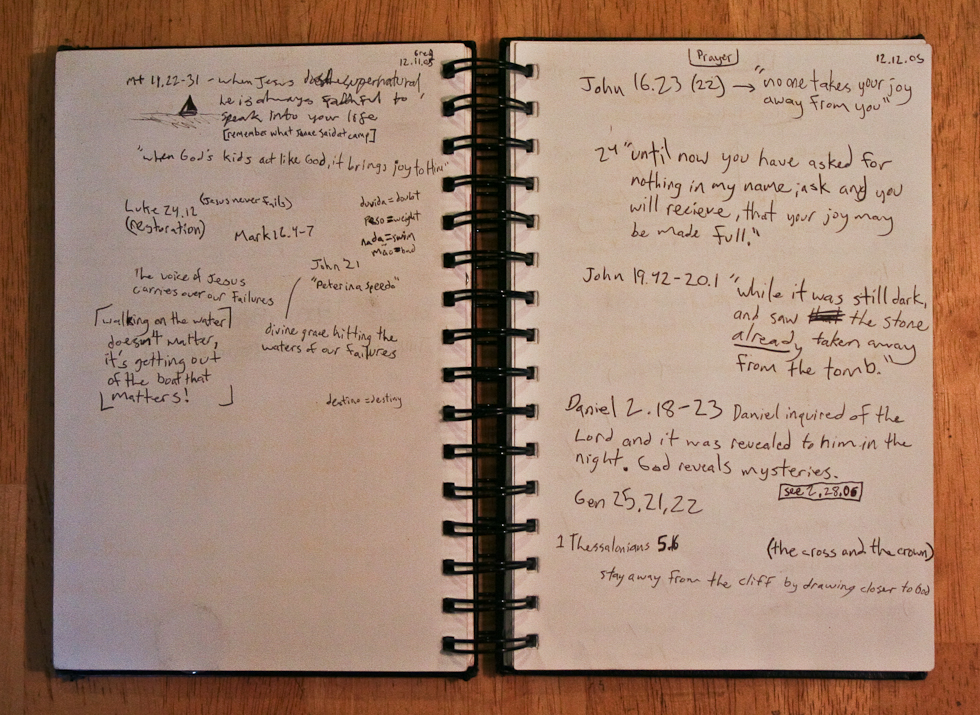 Greg
12.11.05
Mt 14.22-31 - when Jesus does the supernatural
he is always faithful to
speak into your life
[remember what Shane said at camp]
"when God's kids act like God, it brings joy to Him"
Luke 24.12 (Jesus never fails)
(restoration)
Mark 16.4-7
duvida = doubt
peso = weight
nada = swim
mao = bad
John 21
"Peter in a speedo"
The voice of Jesus
carries over our failures
divine grace hitting the
waters of our failures
[walking on the water]
doesn't matter,
it's getting out
of the boat that
[matters!]
destino = destiny
Prayer
12.12.05
John 16.23 (22) → "no one takes your joy
away from you"
24 "until now you have asked for
nothing in my name; ask and you
will recieve, that your joy may
be made full."
John 19.42-20.1 "while it was still dark,
and saw the stone
already taken away
from the tomb."
Daniel 2.18-23 Daniel inquired of the
Lord and it was revealed to him in the
night. God reveals mysteries.
see 2,28,06
Gen 25,21,22
1 Thessalonians 5.6
(the cross and the crown)
stay away from the cliff by drawing closer to God